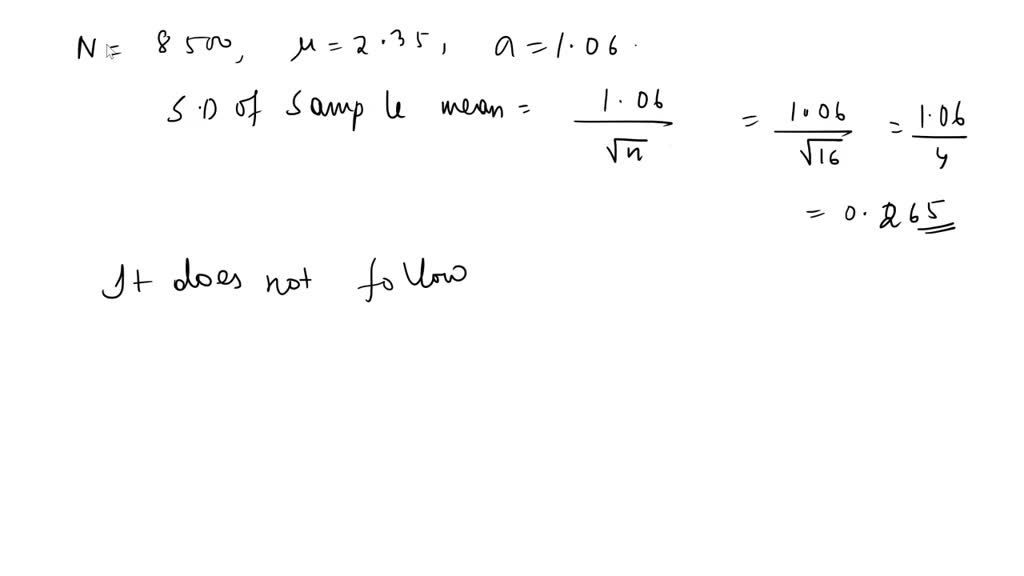 N = 8500, μ = 2.35, a = 1.06.
S.D of Sample mean = 1.06 / √n = 1.06 / √16 = 1.06 / 4
= 0.265
It does not follow